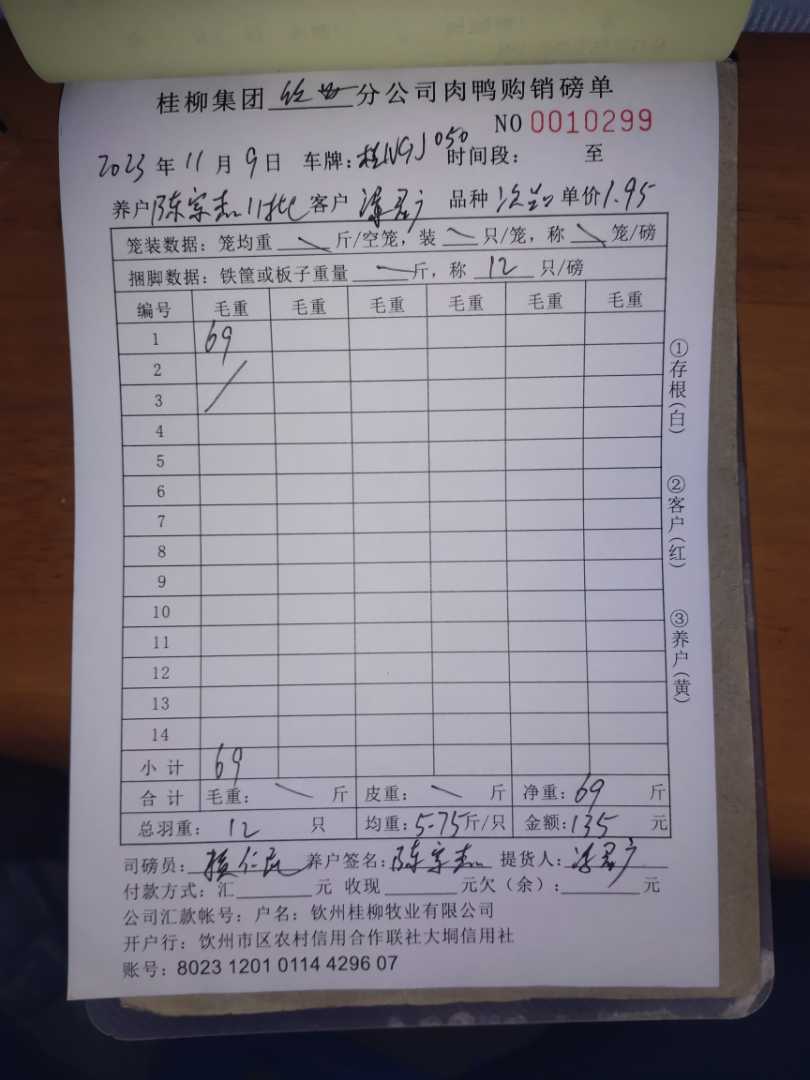 桂柳集团 钦州 分公司肉鸭购销磅单
NO 0010299
2023 年 11 月 9 日 车牌: 桂NGJ050 时间段: 至
养户 陈宗杰11批 客户 品种 次品 单价 1.95
笼装数据: 笼均重 \ 斤/空笼, 装 \ 只/笼, 称 \ 笼/磅
捆脚数据: 铁筐或板子重量 \ 斤, 称 12 只/磅
编号 毛重 毛重 毛重 毛重 毛重 毛重
1 69
2 /
3
4
5
6
7
8
9
10
11
12
13
14
小 计 69
合 计 毛重: \ 斤 皮重: \ 斤 净重: 69 斤
总羽重: 12 只 均重: 5.75 斤/只 金额: 135 元
司磅员: 仁 养户签名: 陈宗杰 提货人:
付款方式: 汇 元 收现 元欠（余）: 元
公司汇款帐号: 户名: 钦州桂柳牧业有限公司
开户行: 钦州市区农村信用合作联社大垌信用社
账号: 8023 1201 0114 4296 07
①存根(白)
②客户(红)
③养户(黄)